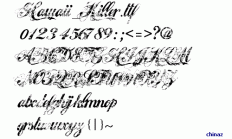 Hawaii Killer.ttf
0123456789:;<=>?@
ABCDEFGHIJKLM
NOPQRSTUVWXYZ
abcdefghijklmnop
qrstuvwxyz{|}~
chinaz